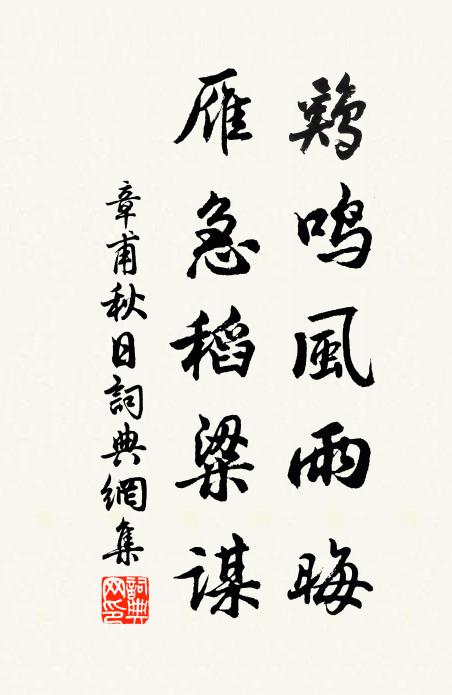 鷄鳴風雨晦
雁急稻粱謀
章甫秋日詞典網集
詞典網印